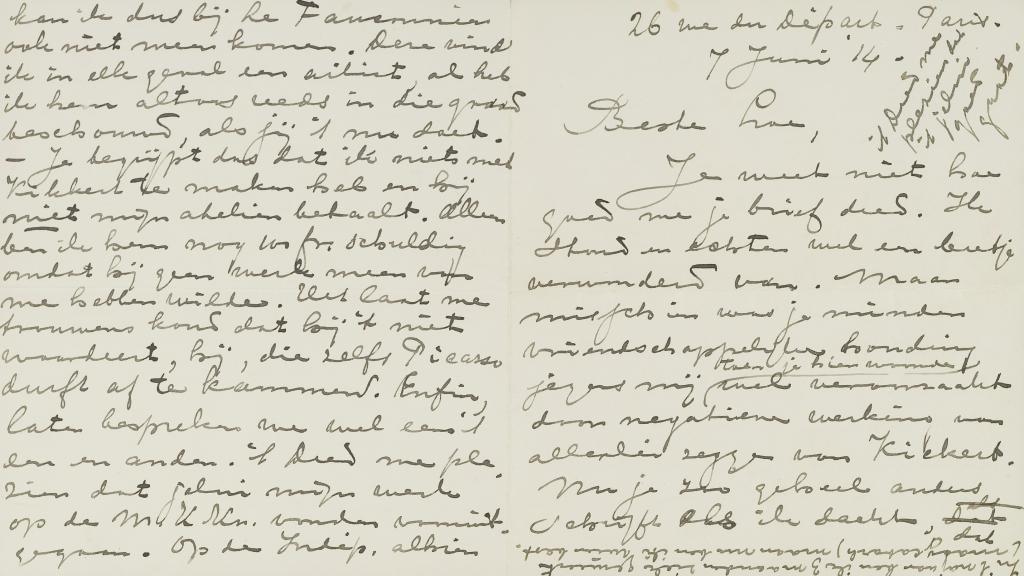 kan ik dus bij Le Fauconnier
ook niet meer komen. Deze vind
ik in elk geval een artist, al heb
ik hem altoos reeds in die graad
beschouwd, als jij 't nu doet.
– Je begrijpt dus dat ik niets met
Kikkert te maken heb en hij
niet mijn atelier betaalt. Alleen
ben ik hem nog 100 frs. schuldig
omdat hij geen werk meer van
me hebben wilde. Het laat me
trouwens koud dat hij 't niet
waardeert, hij, die zelfs Picasso
durft af te kammend. Enfin,
later bespreken we wel eens 't
een en ander. 't Deed me ple-
zier dat jelui mijn werk
op de M.K.Kn. vonden vooruit-
gegaan. Op de Indép. alhier
26 rue du Départ. Paris.
7 Juni '14.
't Deed me
plezier dat
't jelui
goed
gaat.
Beste Loe,
Je weet niet hoe
goed me je brief deed. Ik
stond er echter wel een beetje
verwonderd van. Maar
misschien was je minder
vriendschappelijke houding
toen je hier woonde
jegens mij wel veroorzaakt
door negatieve werking van
allerlei zegge van Kickert.
Nu je zoo geheel anders
schrijft als ik dacht, dat
dat
In 't najaar ben ik 3 maanden ziek geweest
(maag catarh) maar nu ben ik weer best.